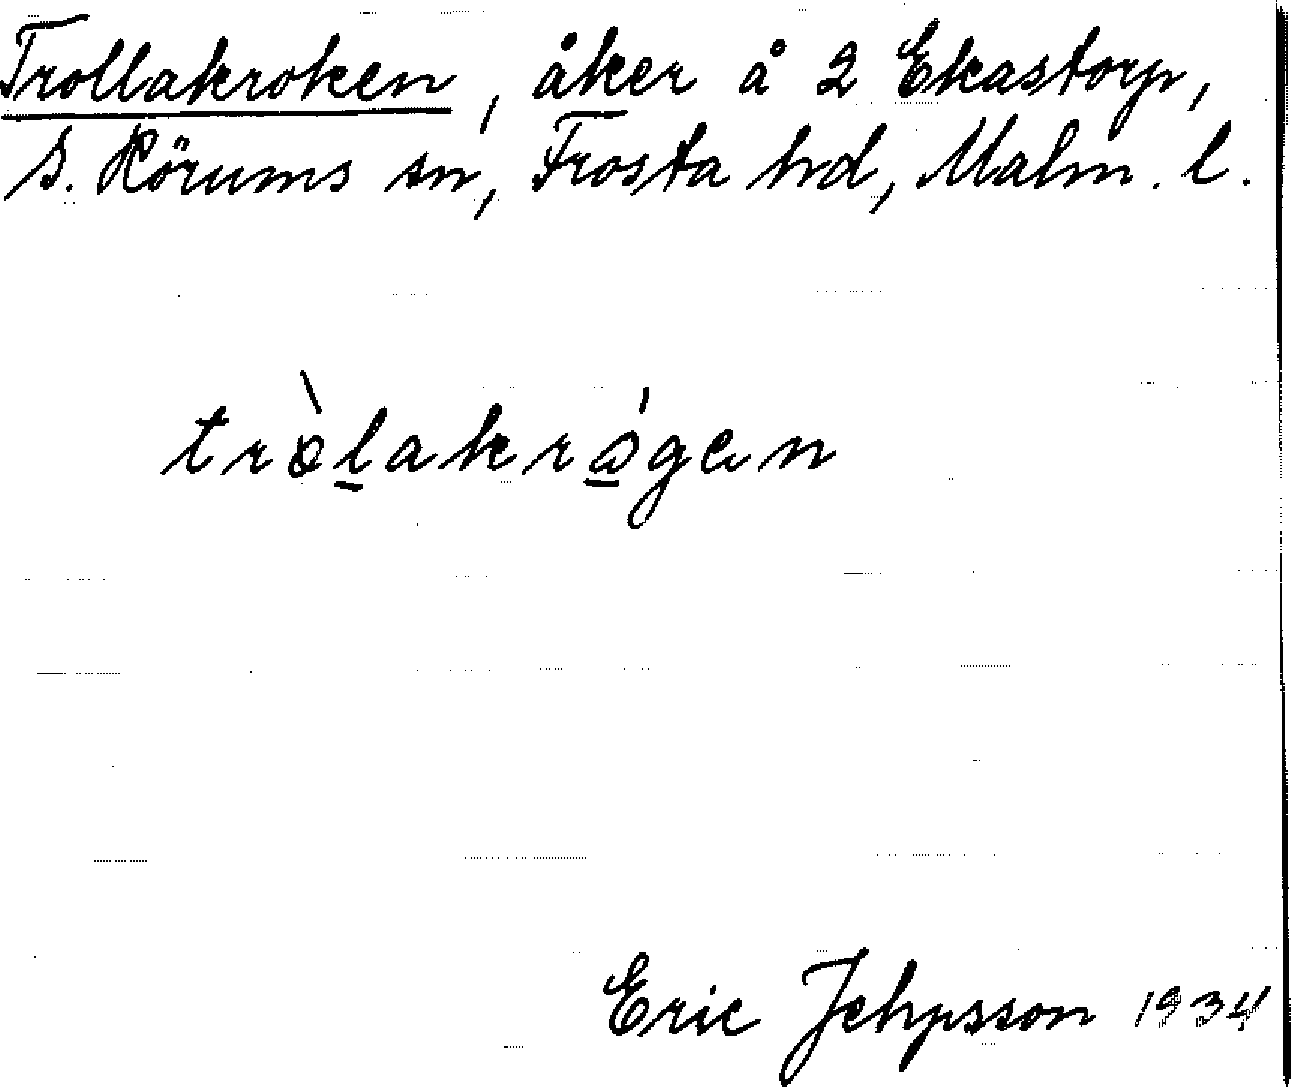 Trollakroken, åker å 2 Ekastorp,
S. Rörums sn, Frosta hd, Malm. l.
tròlakrógen
Eric Jehpsson 1934